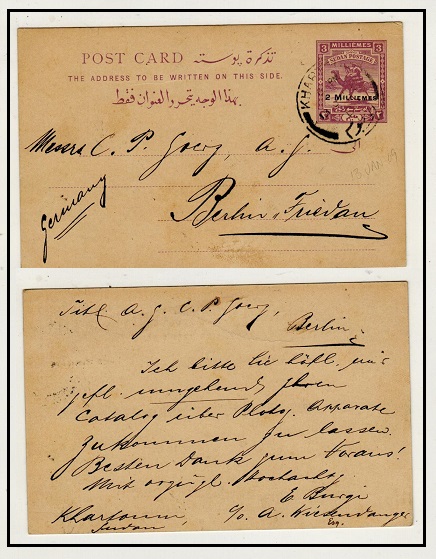 POST CARD تذكرة بوسته
THE ADDRESS TO BE WRITTEN ON THIS SIDE.
بهذا الوجه يتحرر العنوان فقط
3 MILLIEMES 3
SUDAN POSTAGE
2 MILLIEMES
KHAR
Messrs C. P. Goerz, A. G.
Berlin-Friedan
Germany
13 JAN 19
Titl. A. G. C. P. Goerz,
Berlin.
Ich bitte Sie höfl. mir
gefl. umgehend Ihren
Catalog über Photog. Apparate
zukommen zu lassen.
Besten Dank zum Voraus!
Mit vorzügl. Hochachtg.
E Bürgi
Khartoum, c/o A. Wiesendanger
Sudan Esq.